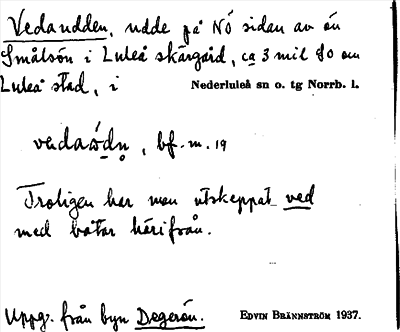 Vedaudden, udde på NÖ sidan av ön
Småsön i Luleå skärgård, ca 3 mil SO om
Luleå stad, i Nederluleå sn o. tg Norrb. l.
, bf. m. 19
Troligen har man utskeppat ved
med båtar härifrån.
Uppg. från byn Degerön. EDVIN BRÄNNSTRÖM 1937.